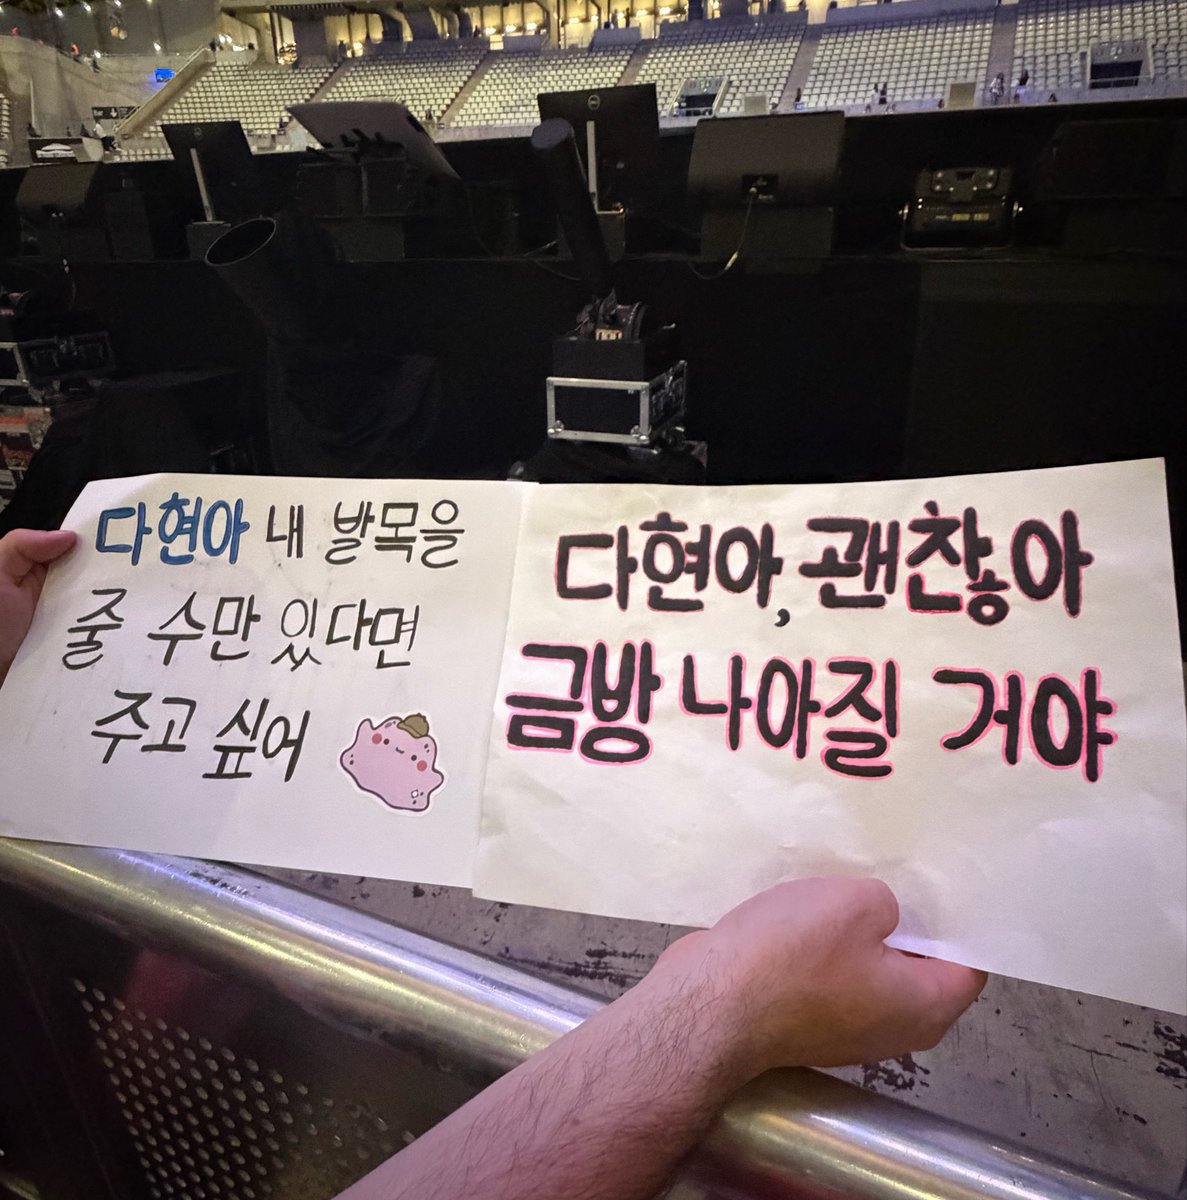 다현아 내 발목을
줄 수만 있다면
주고 싶어
다현아, 괜찮아
금방 나아질 거야